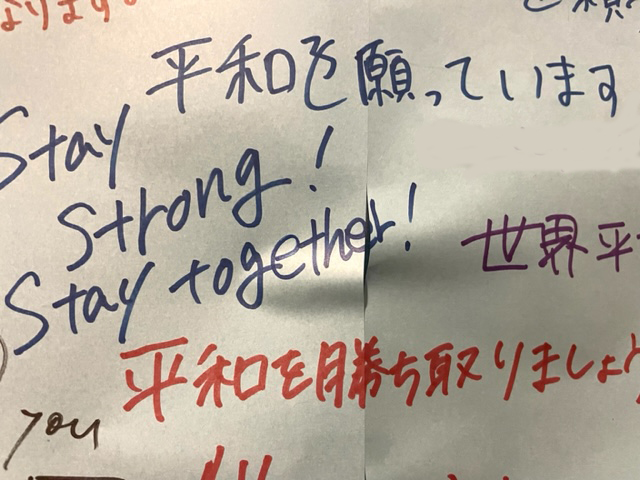 なります。
平和を願っています
Stay
Strong!
Stay together!
世界平
平和を勝ち取りましょう
you